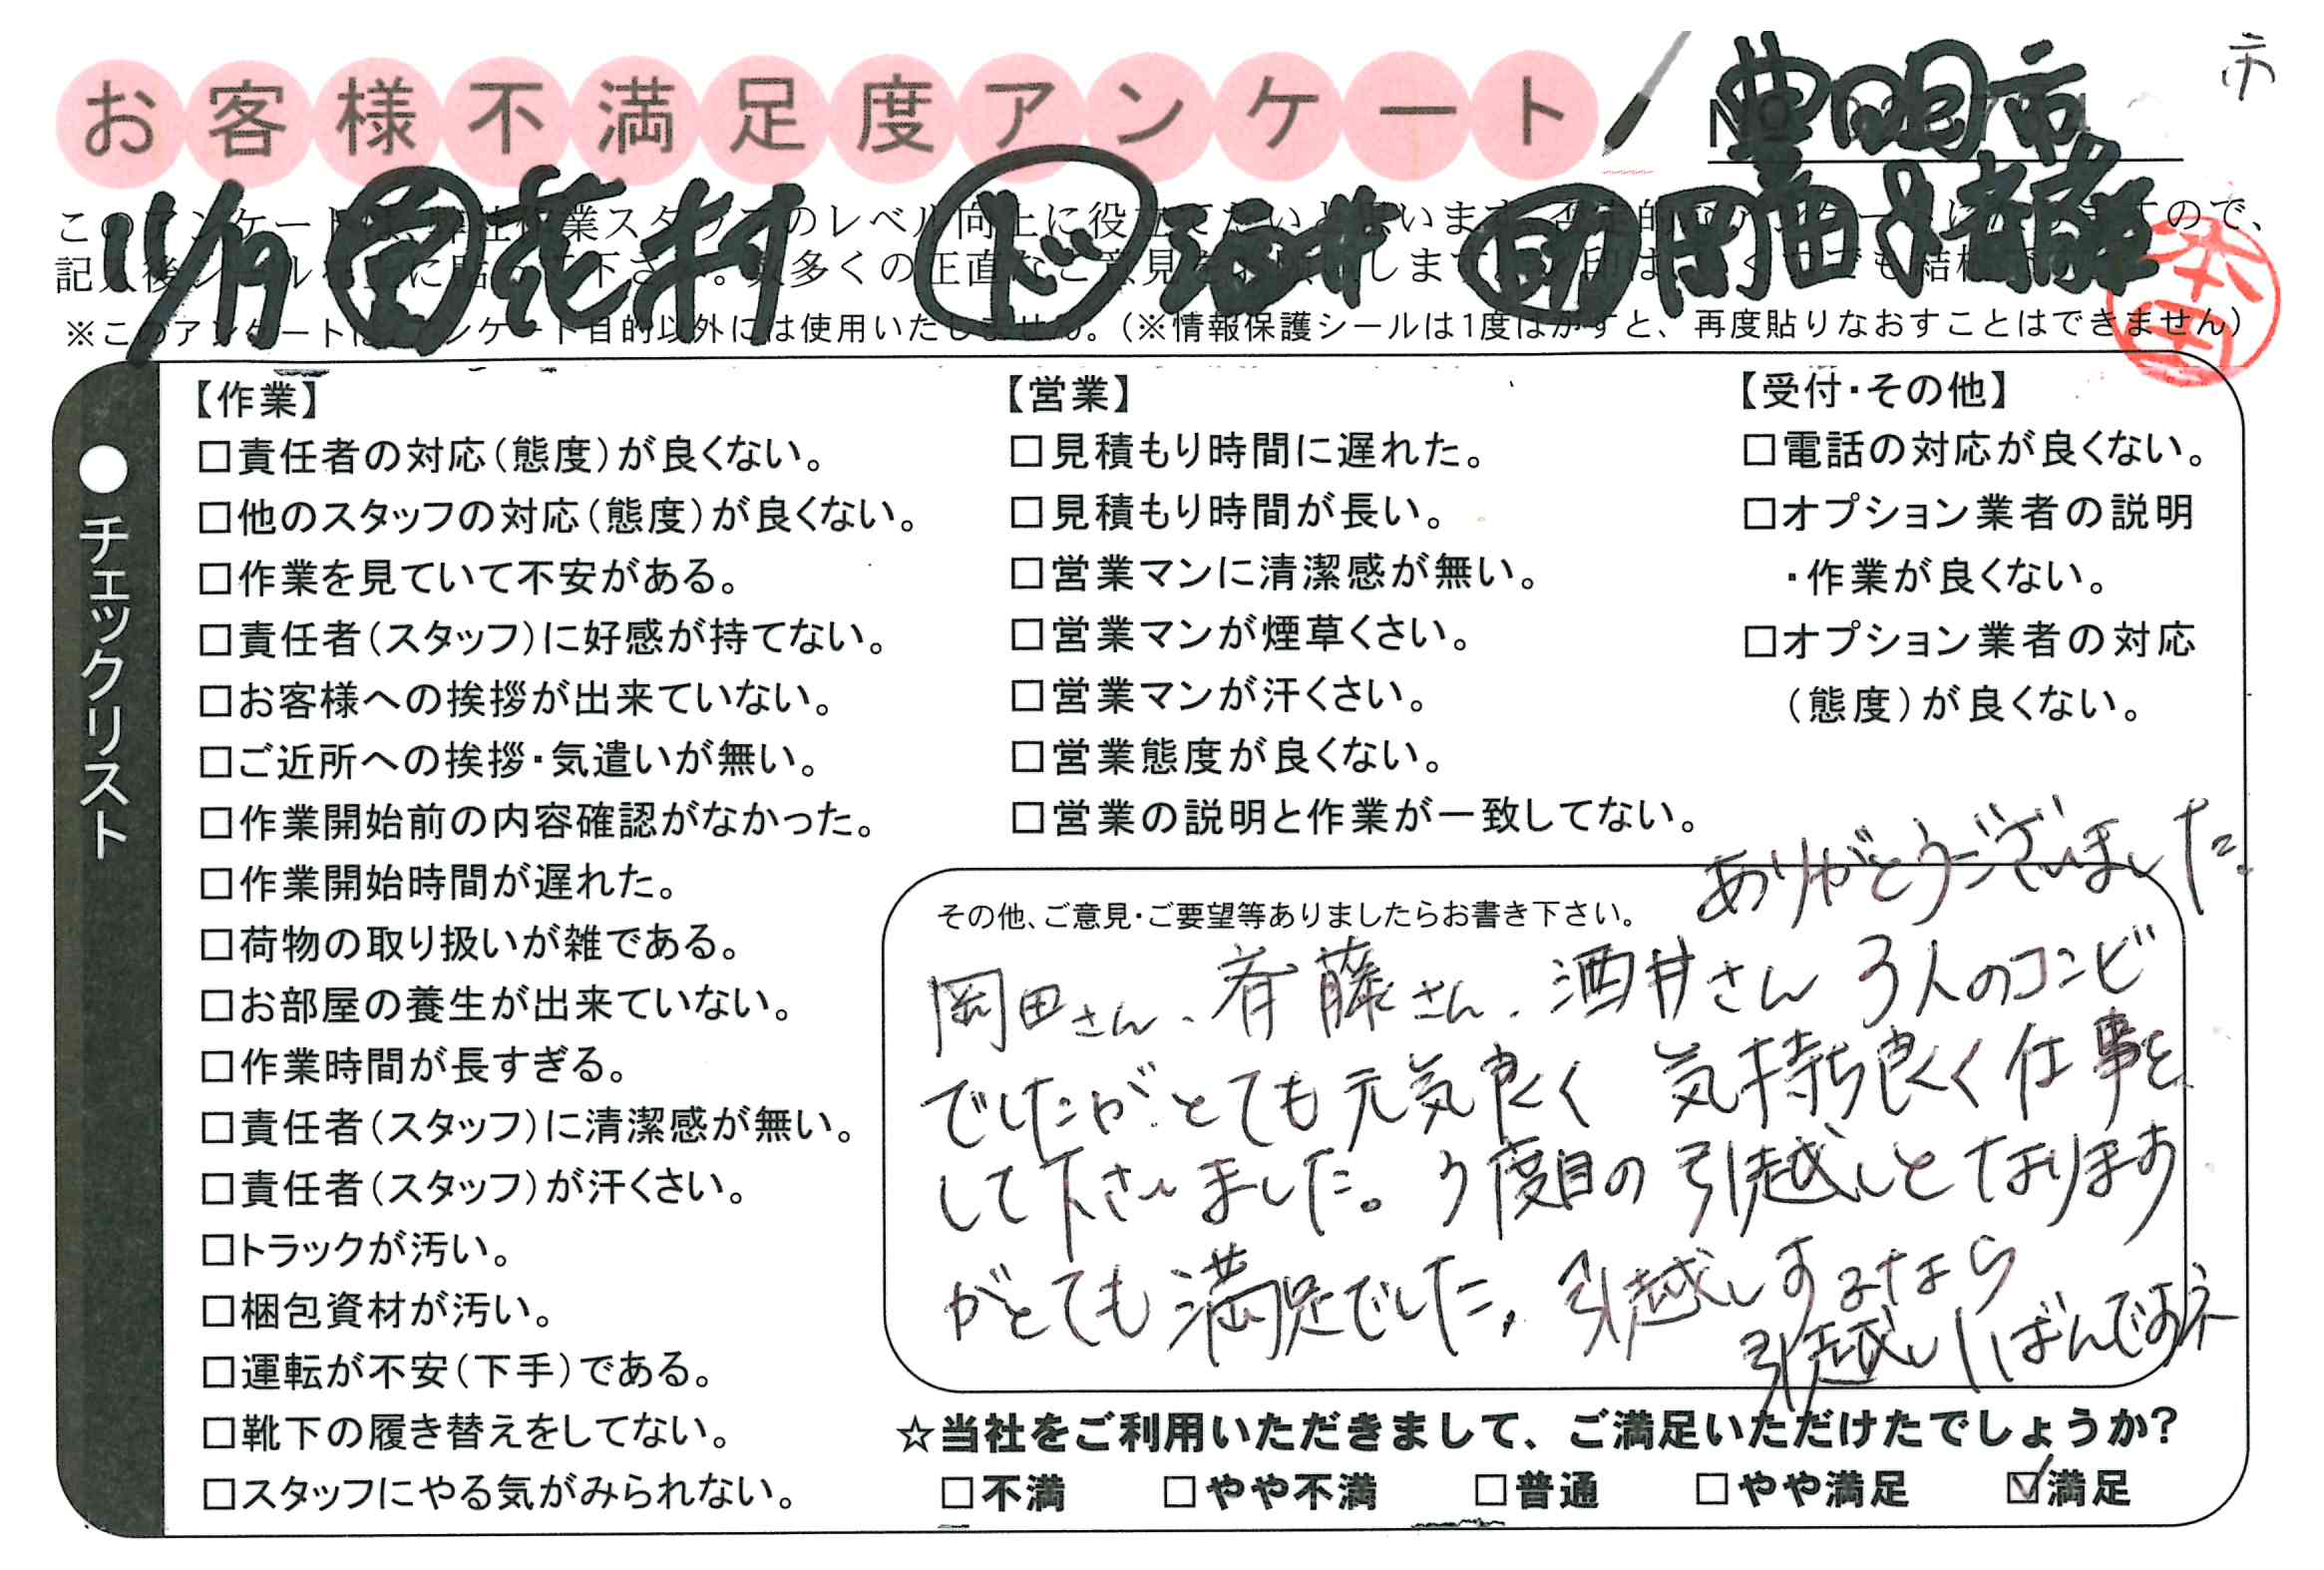 お客様不満足度アンケート
豊明市
市
11/19 営 花村 ド 酒井 助 岡田 斉藤
本田
※このアンケートはアンケート目的以外には使用いたしません。(※情報保護シールは1度はがすと、再度貼りなおすことはできません)
●チェックリスト
【作業】
□責任者の対応(態度)が良くない。
□他のスタッフの対応(態度)が良くない。
□作業を見ていて不安がある。
□責任者(スタッフ)に好感が持てない。
□お客様への挨拶が出来ていない。
□ご近所への挨拶・気遣いが無い。
□作業開始前の内容確認がなかった。
□作業開始時間が遅れた。
□荷物の取り扱いが雑である。
□お部屋の養生が出来ていない。
□作業時間が長すぎる。
□責任者(スタッフ)に清潔感が無い。
□責任者(スタッフ)が汗くさい。
□トラックが汚い。
□梱包資材が汚い。
□運転が不安(下手)である。
□靴下の履き替えをしてない。
□スタッフにやる気がみられない。
【営業】
□見積もり時間に遅れた。
□見積もり時間が長い。
□営業マンに清潔感が無い。
□営業マンが煙草くさい。
□営業マンが汗くさい。
□営業態度が良くない。
□営業の説明と作業が一致してない。
【受付・その他】
□電話の対応が良くない。
□オプション業者の説明
・作業が良くない。
□オプション業者の対応
(態度)が良くない。
その他、ご意見・ご要望等ありましたらお書き下さい。
岡田さん、斉藤さん、酒井さん 3人のコンビ
でしたがとても元気良く 気持ち良く仕事を
して下さいました。2度目の引越しとなります
がとても満足でした。引越しするなら
引越しいばんですネ
ありがとうございました。
☆当社をご利用いただきまして、ご満足いただけたでしょうか?
□不満 □やや不満 □普通 □やや満足 ☑満足